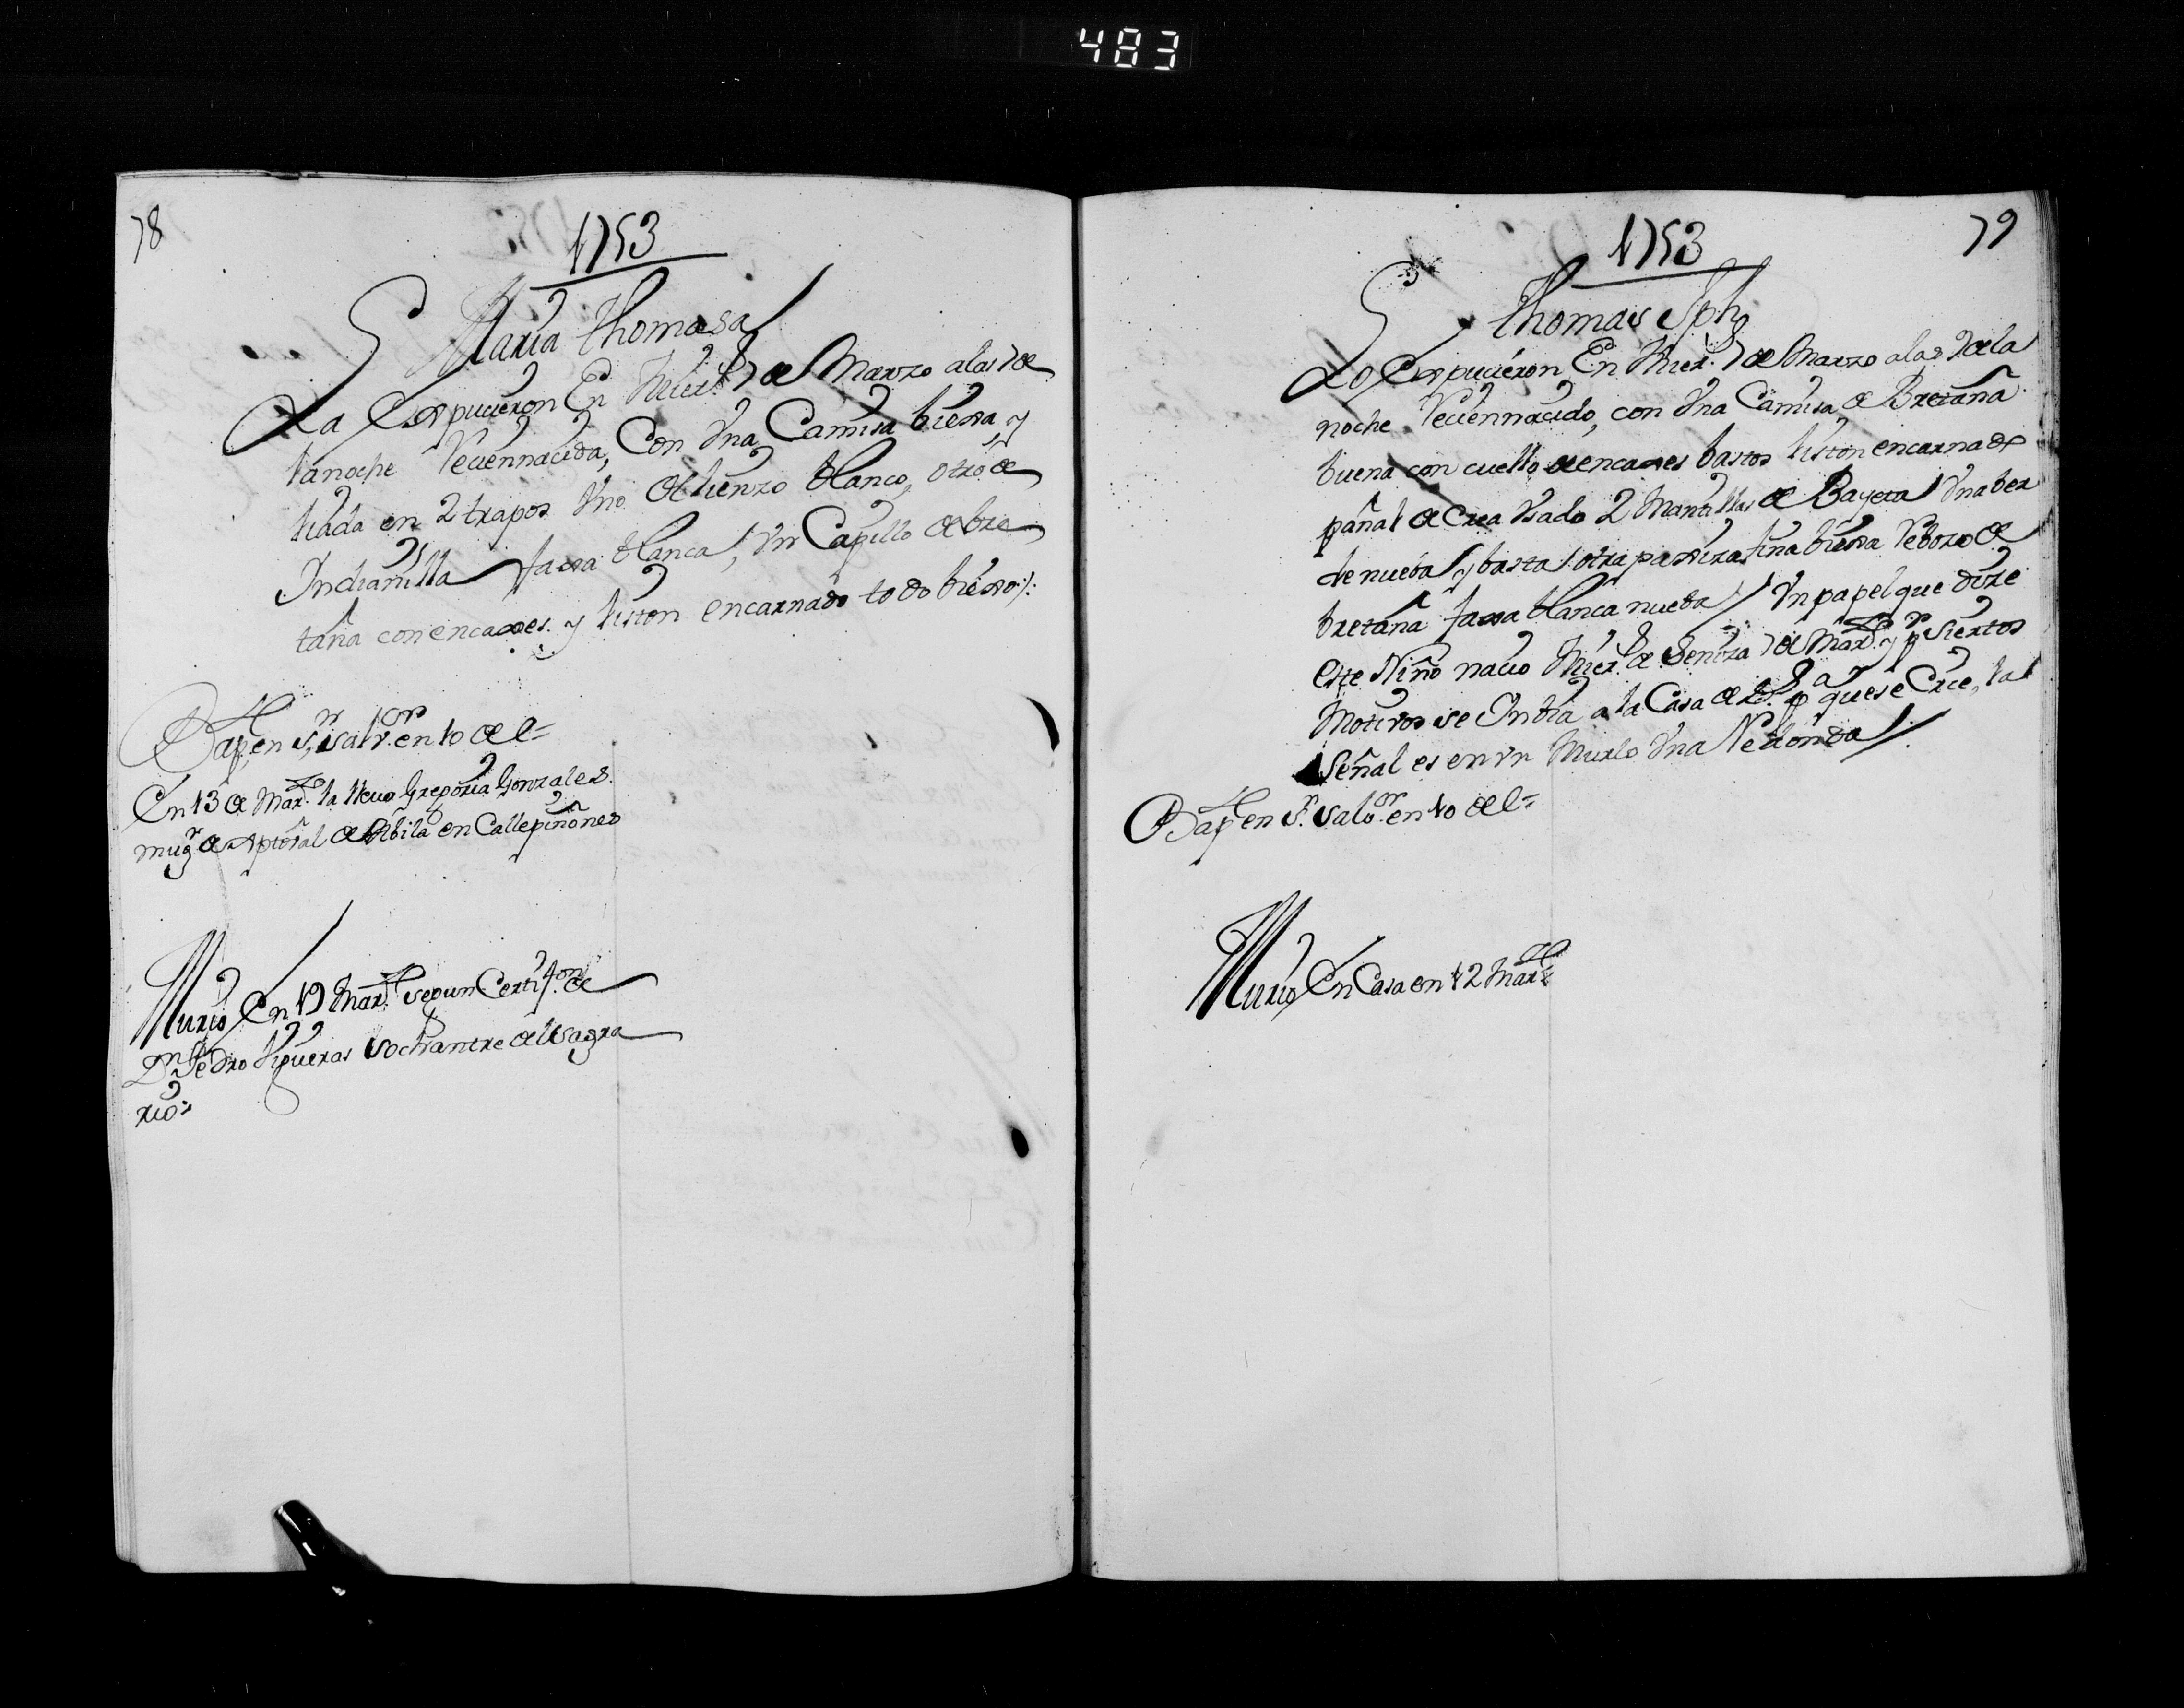 483
78
1753
Maria Thomasa
La Expucieron En Mierˢ 7 de Marzo alas 7 de
lanoche Reciennacida, Con Vna Camisa bieja, y
liada en 2 trapos Vno de lienzo blanco, otro de
Indianilla faxa blanca, Vn Capillo de bre
taña con encaxes y liston encarnado todo biejo
Bapᵈᵃ en Sⁿ Salvᵒʳ en 10 de el
En 13 de Marᶻᵒ la llevo Gregoria Gonzales
mugʳ de en Calle piñones
Murio En 19 Marᶻᵒ segun Certifᵒⁿ de
Dⁿ Pedro Higueras Sochantre del Sagra
rio
79
1753
Thomas Jph
Lo Expucieron En Mierˢ 7 de Marzo alas 9 dela
noche Reciennacido, con Vna Camisa de Bretaña
buena con cuello de encaxes bastos liston encarnado
pañal de Crea Vsado 2 Mantillas de Bayeta Vna ber
de nueba y basta otra pajiza fina bieja Rebozo de
bretaña faxa blanca nueba Vn papel que dize
Este Niño nacio Mierˢ de Seniza 7 de Marᶻᵒ y pʳ Siertos
Motivos se Inbia a la Casa de pᵃ que se Crie, la
Señal es en Vn Murlo Vna Redonda
Bapᵈᵒ en Sⁿ Salvᵒʳ en 10 de el
Murio En Casa en 12 Marᶻᵒ